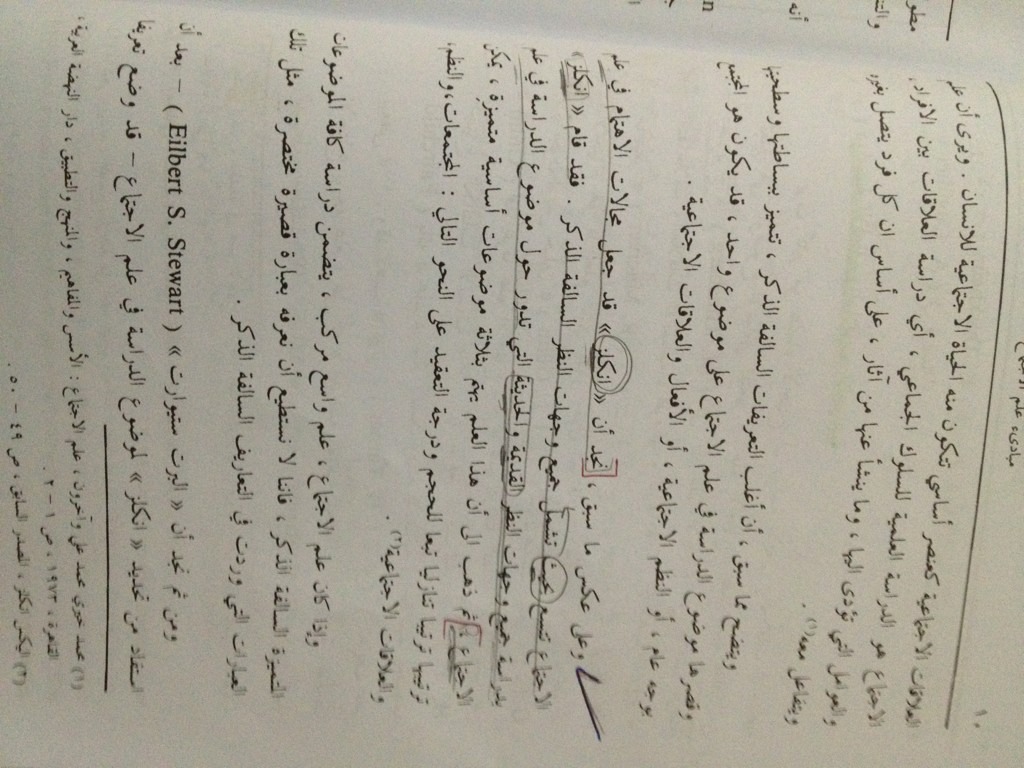 ١٠
مبادىء علم الاجتماع
العلاقات الاجتماعية كعنصر أساسي تتكون منه الحياة الاجتماعية للانسان . ويرى أن علم
الاجتماع هو الدراسة العلمية للسلوك الجماعي ، أي دراسة العلاقات بين الافراد
والعوامل التي تؤدى اليها ، وما ينشأ عنها من آثار ، على أساس ان كل فرد يتصل بغيره
ويتفاعل معه(١) .
ويتضح مما سبق ، أن أغلب التعريفات السالفة الذكر ، تتميز ببساطتها وسطحيتها
وقصرها موضوع الدراسة في علم الاجتماع على موضوع واحد ، قد يكون هو المجتمع
بوجه عام ، أو النظم الاجتماعية ، أو الأفعال والعلاقات الاجتماعية .
وعلى عكس ما سبق ، نجد أن « انكلز » قد جعل مجالات الاهتمام في علم
الاجتماع تتسع بحيث تشمل جميع وجهات النظر السالفة الذكر . فقد قام « انكلز »
بدراسة جميع وجهات النظر القديمة والحديثة التي تدور حول موضوع الدراسة في علم
الاجتماع ، ثم ذهب الى أن هذا العلم يهتم بثلاثة موضوعات أساسية متميزة ، يمكن
ترتيبها ترتيبا تنازليا تبعا للحجم ودرجة التعقيد على النحو التالي : المجتمعات، والنظم،
والعلاقات الاجتماعية(٢) .
وإذا كان علم الاجتماع ، علم واسع مركب ، يتضمن دراسة كافة الموضوعات
المتميزة السالفة الذكر ، فاننا لا نستطيع أن نعرفه بعبارة قصيرة مختصرة ، مثل تلك
العبارات التي وردت في التعاريف السالفة الذكر .
ومن ثم نجد أن « البرت ستيوارت » ( Eilbert S. Stewart ) – بعد أن
استفاد من تحديد « انكلز » لموضوع الدراسة في علم الاجتماع – قد وضع تعريفا
(١) محمد خيري محمد علي وآخرون ، علم الاجتماع : الأسس والمفاهيم ، والمنهج والتطبيق ، دار النهضة العربية ،
القاهرة ، ١٩٧٣ ، ص ١ – ٢ .
(٢) اليكس انكلز ، المصدر السابق ، ص ٤٩ – ٥٠ .